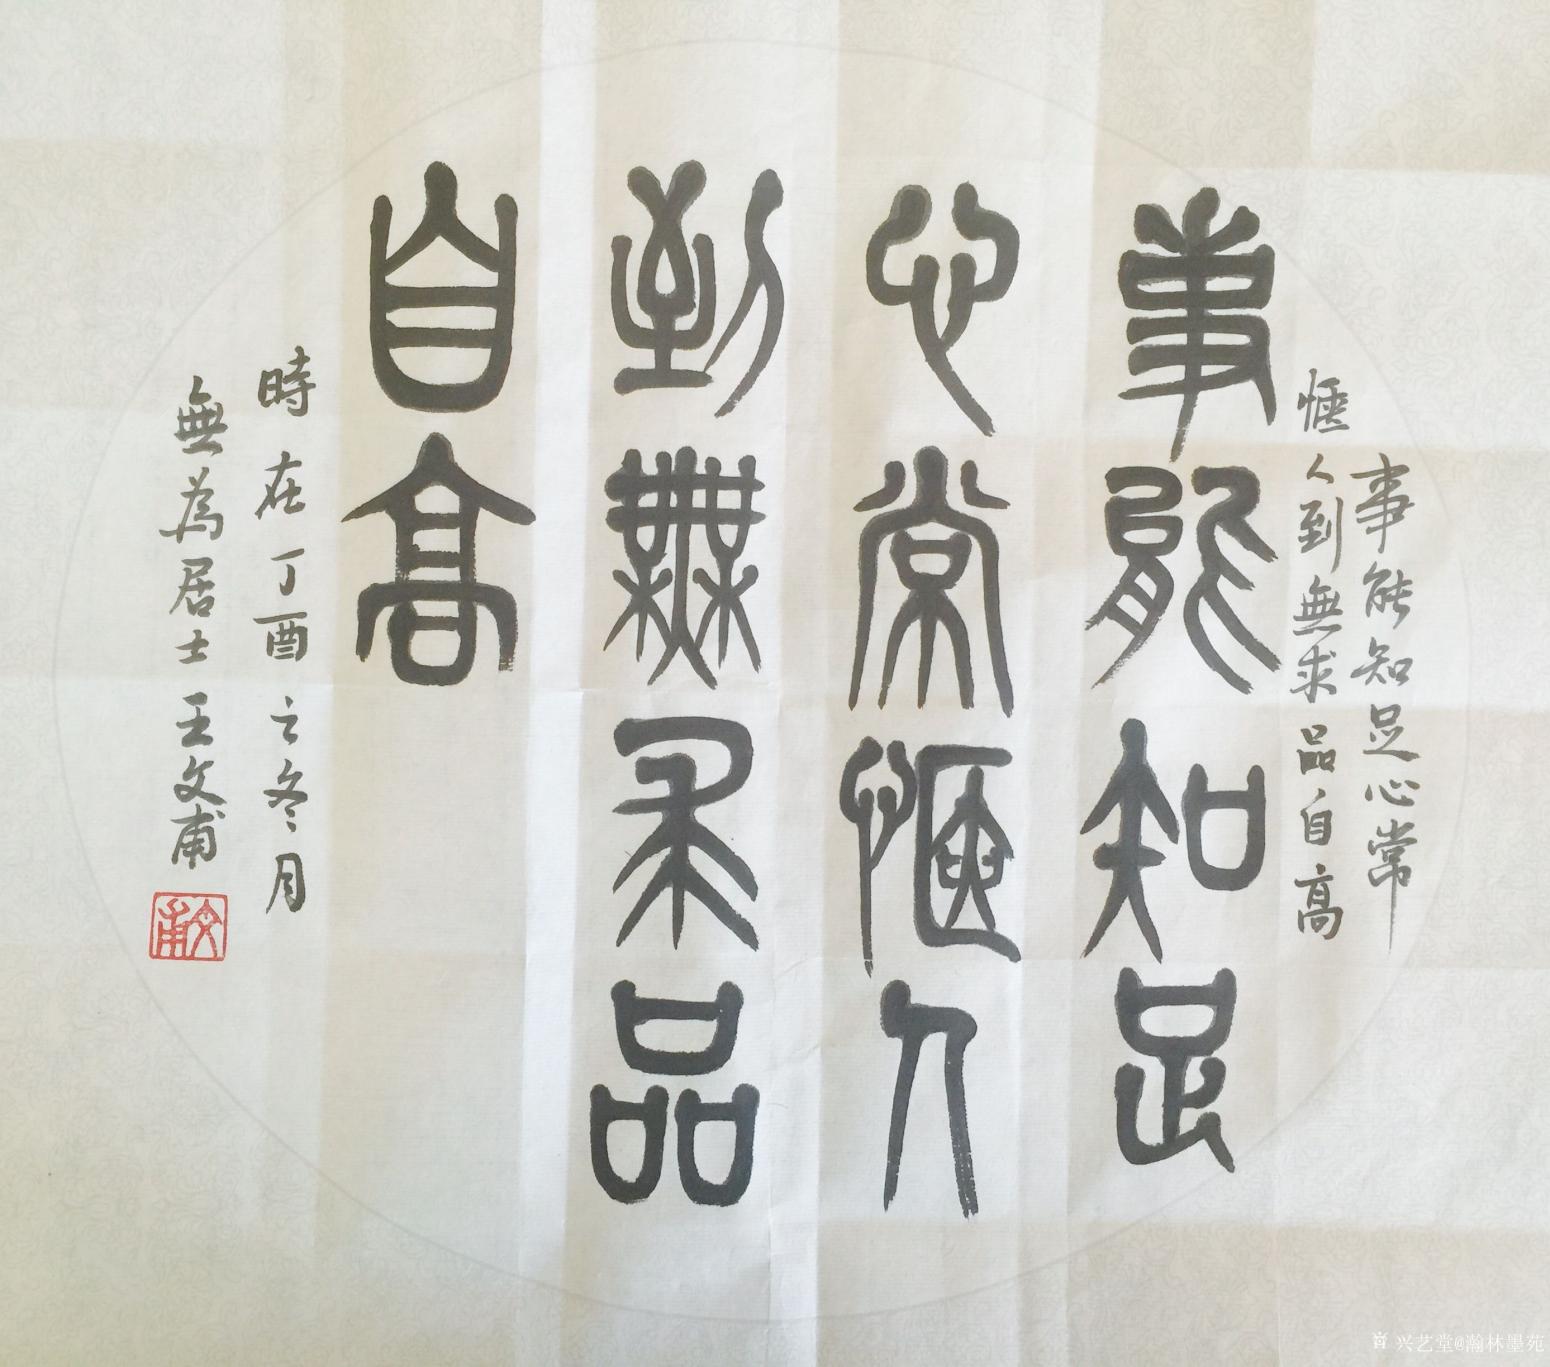 事能知足心常
愜人到無求品自高
事能知足
心常愜人
到無求品
自高
時在丁酉之冬月
無為居士王文甫
文甫
兴艺堂@瀚林墨苑